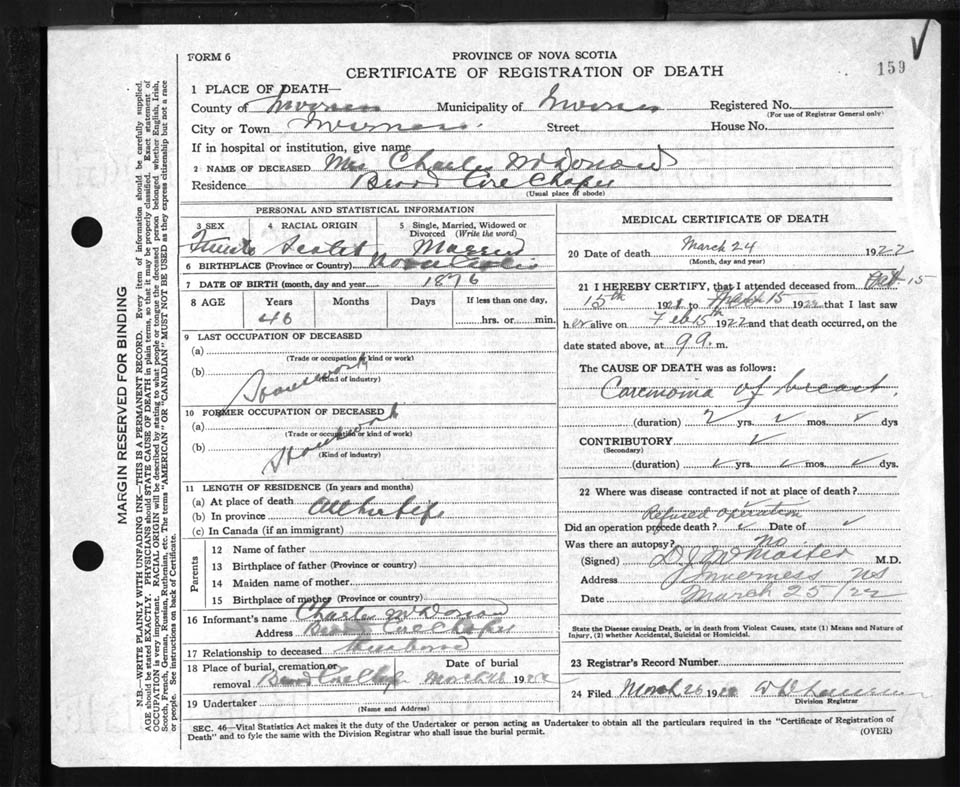 159
FORM 6
PROVINCE OF NOVA SCOTIA
CERTIFICATE OF REGISTRATION OF DEATH
1 PLACE OF DEATH—
County of Inverness Municipality of Inverness Registered No.
(For use of Registrar General only)
City or Town Inverness. Street House No.
If in hospital or institution, give name
2 NAME OF DECEASED Mrs Charles McDonald
Residence Broad Cove Chapel
(Usual place of abode)
PERSONAL AND STATISTICAL INFORMATION
3 SEX 4 RACIAL ORIGIN 5 Single, Married, Widowed or
Divorced (Write the word)
Female Scotch Married
6 BIRTHPLACE (Province or Country) Nova Scotia
7 DATE OF BIRTH (month, day and year) 1876
8 AGE Years Months Days If less than one day,
46 hrs. or min.
9 LAST OCCUPATION OF DECEASED
(a)
(Trade or occupation or kind of work)
(b) Housework
(Kind of industry)
10 FORMER OCCUPATION OF DECEASED
(a)
(Trade or occupation or kind of work)
(b) Housework
(Kind of industry)
11 LENGTH OF RESIDENCE (In years and months)
(a) At place of death
(b) In province All her life
(c) In Canada (if an immigrant)
Parents
12 Name of father
13 Birthplace of father (Province or country)
14 Maiden name of mother
15 Birthplace of mother (Province or country)
16 Informant's name Charles McDonald
Address Broad Cove Chapel
17 Relationship to deceased Husband
18 Place of burial, cremation or Date of burial
removal Broad Cove Chapel March 26 1922
19 Undertaker
(Name and Address)
MEDICAL CERTIFICATE OF DEATH
20 Date of death March 24 1922
(Month, day and year)
21 I HEREBY CERTIFY, that I attended deceased from
15th 192 to 15 1922 that I last saw
her alive on Feb 15th 1922 and that death occurred, on
date stated above, at 9 a. m.
The CAUSE OF DEATH was as follows:
Carcinoma of breast.
(duration) 2 yrs. mos. dys
CONTRIBUTORY
(Secondary)
(duration) yrs. mos. dys.
22 Where was disease contracted if not at place of death?
Refused operation
Did an operation precede death? Date of
Was there an autopsy? no
(Signed) M.D.
Address Inverness NS
Date March 25/22
State the Disease causing Death, or in death from Violent Causes, state (1) Means and Nature of
Injury, (2) whether Accidental, Suicidal or Homicidal.
23 Registrar's Record Number
24 Filed March 26 1922
Division Registrar
SEC. 46—Vital Statistics Act makes it the duty of the Undertaker or person acting as Undertaker to obtain all the particulars required in the "Certificate of Registration of
Death" and to fyle the same with the Division Registrar who shall issue the burial permit.
(OVER)
MARGIN RESERVED FOR BINDING
N.B.—WRITE PLAINLY WITH UNFADING INK—THIS IS A PERMANENT RECORD. Every item of information should be carefully supplied.
AGE should be stated EXACTLY. PHYSICIANS should STATE CAUSE OF DEATH in plain terms, so that it may be properly classified. Exact statement of
OCCUPATION is very important. RACIAL ORIGIN will be described by stating to what people or tongue the deceased person belonged whether English, Irish,
Scotch, French, German, Russian, Ruthenian, etc. The terms "AMERICAN" OR "CANADIAN" MUST NOT BE USED as they express citizenship but not a race
or people. See instructions on back of Certificate.